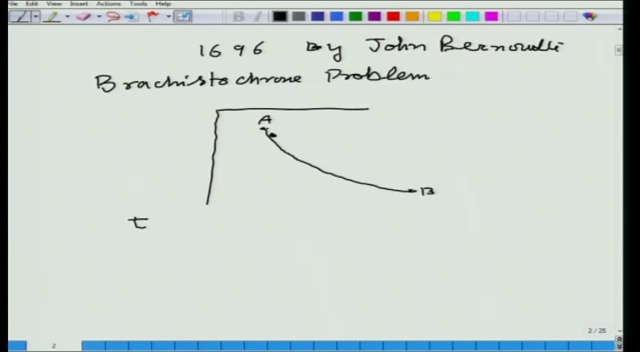 File Edit View Insert Actions Tools Help
1696 by John Bernoulli
Brachistochrone Problem
A
B
t
2 / 25
2